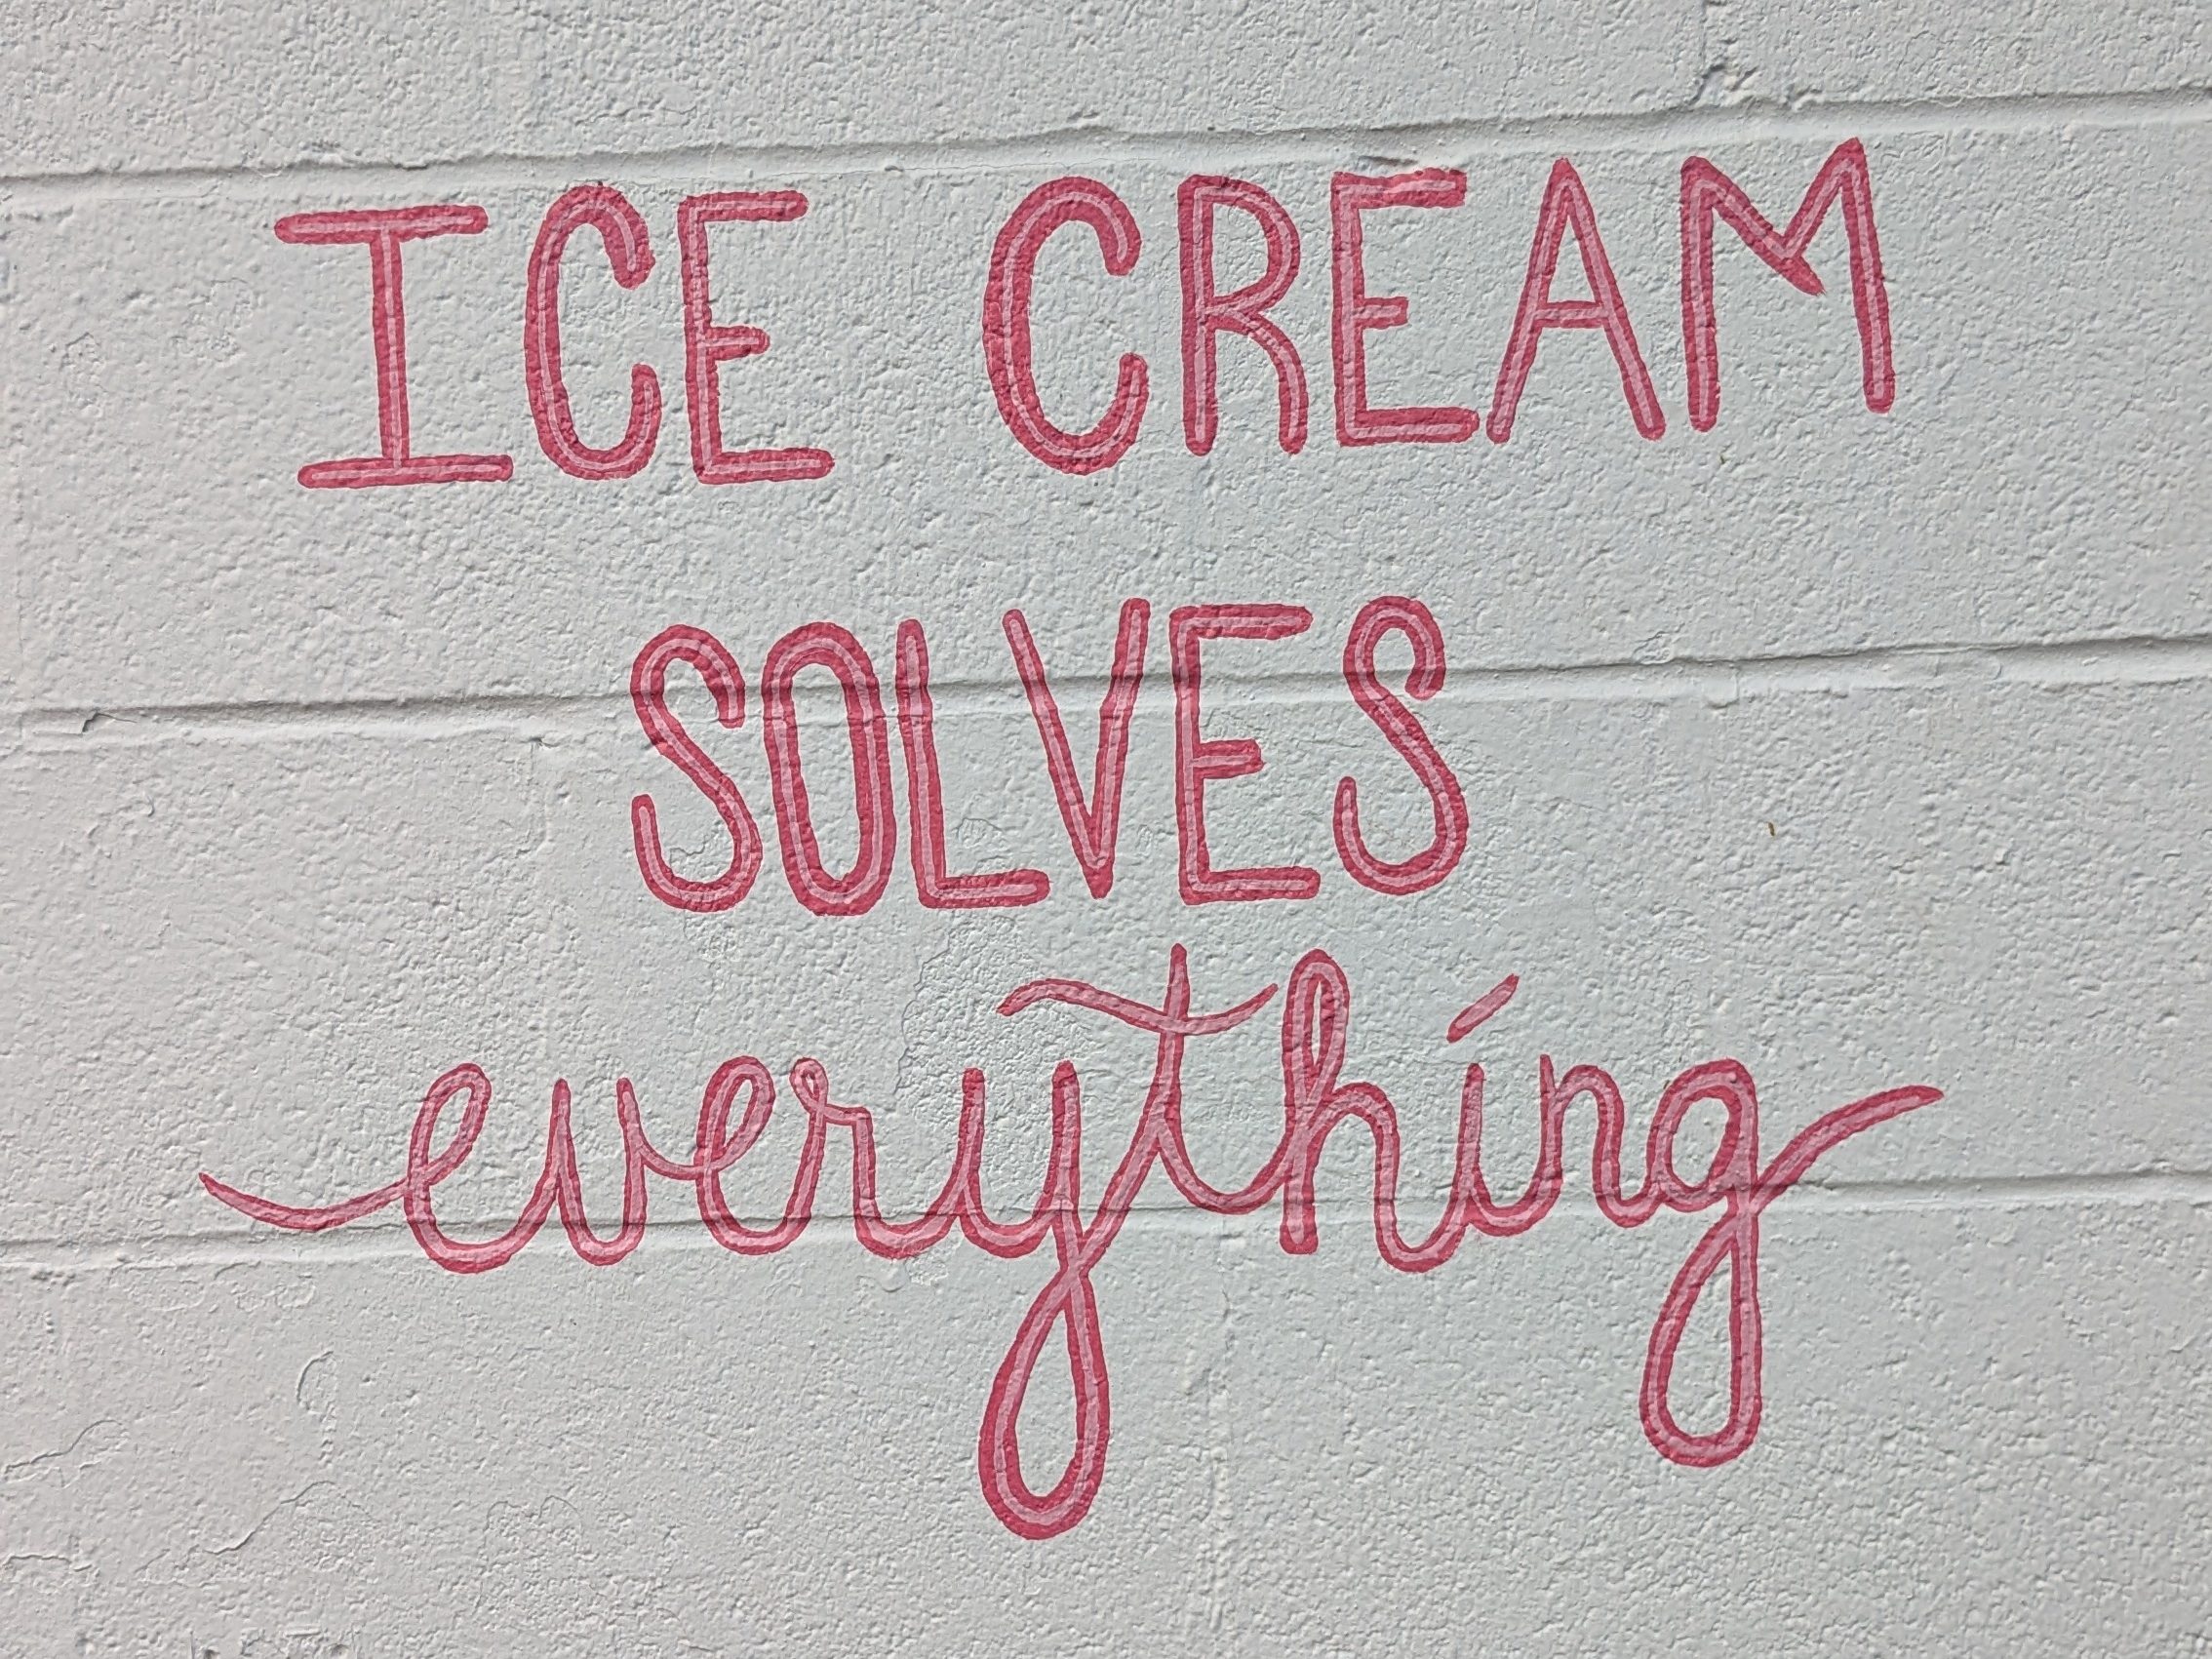 ICE CREAM
SOLVES
everything